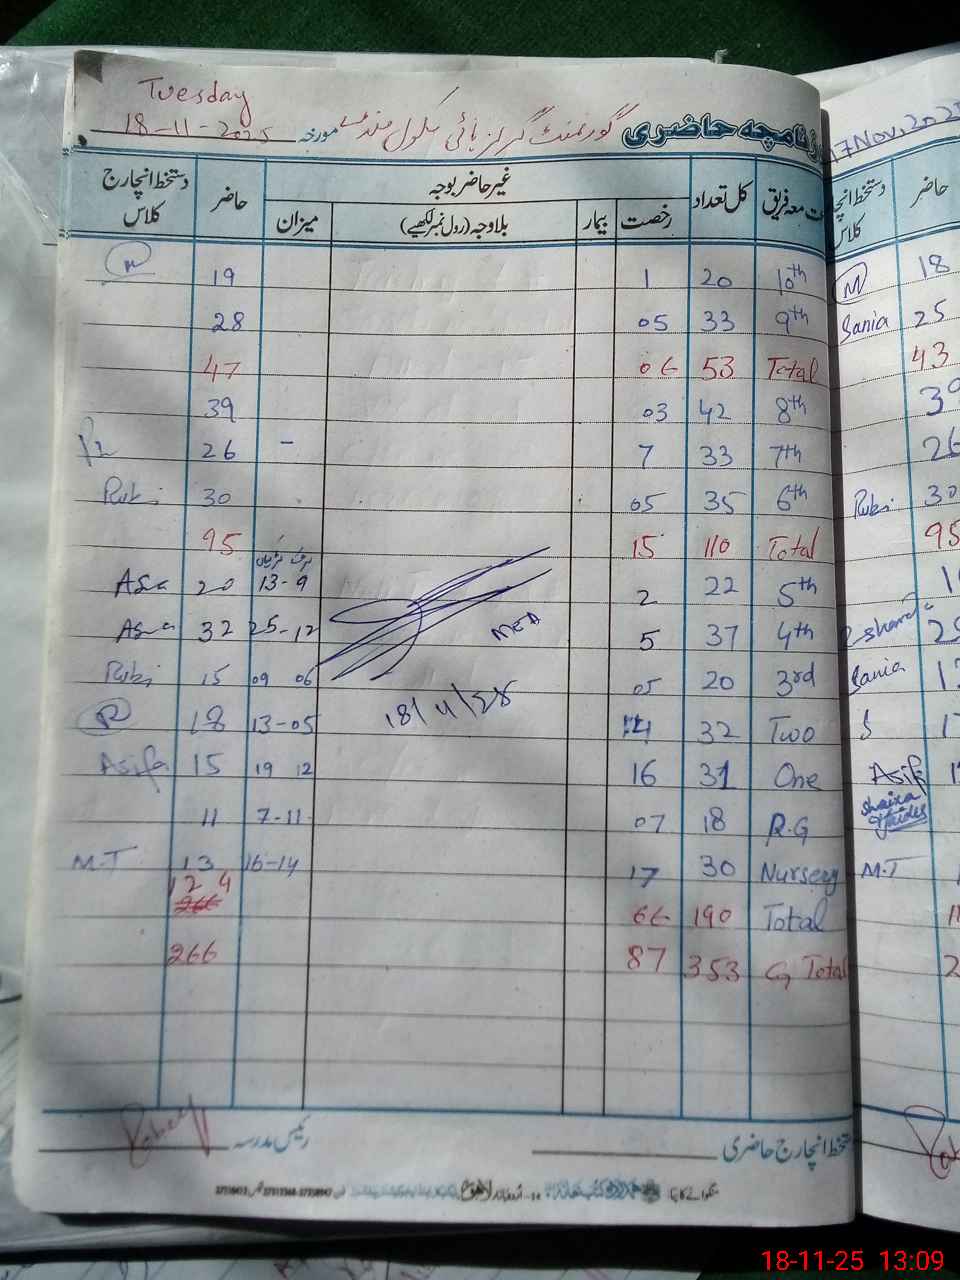 Tuesday
18-11-2025 مورخہ گورنمنٹ گرلز ہائی سکول حاضری
17 Nov, 202
دستخط انچارج کلاس حاضر غیر حاضر بوجہ کل تعداد معہ فریق
میزان بلاوجہ (رول نمبر لکھیے) بیمار رخصت
حاضر
M 19 1 20 10th
28 05 33 9th
47 06 53 Total
39 03 42 8th
26 - 7 33 7th
Rubi 30 05 35 6th
95 15 110 Total
Asa 20 13-9 2 22 5th
Asa 32 25-12 5 37 4th
Rubi 15 09 06 05 20 3rd
R 18 13-05 14 32 Two
Asifa 15 19 12 16 31 One
11 7-11 07 18 R.G
M.T 13 16-14 17 30 Nursery
124
266
66 190 Total
266 87 353 G Total
MEA
18/11/25
M 18
Sania 25
43
26
Rubi 30
95
Sania
S
Asif
M.T
رئیس مدرسہ
دستخط انچارج حاضری
18-11-25 13:09